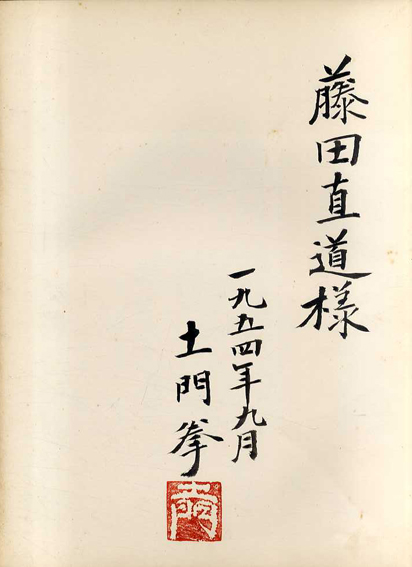 藤田直道様
一九五四年九月
土門拳